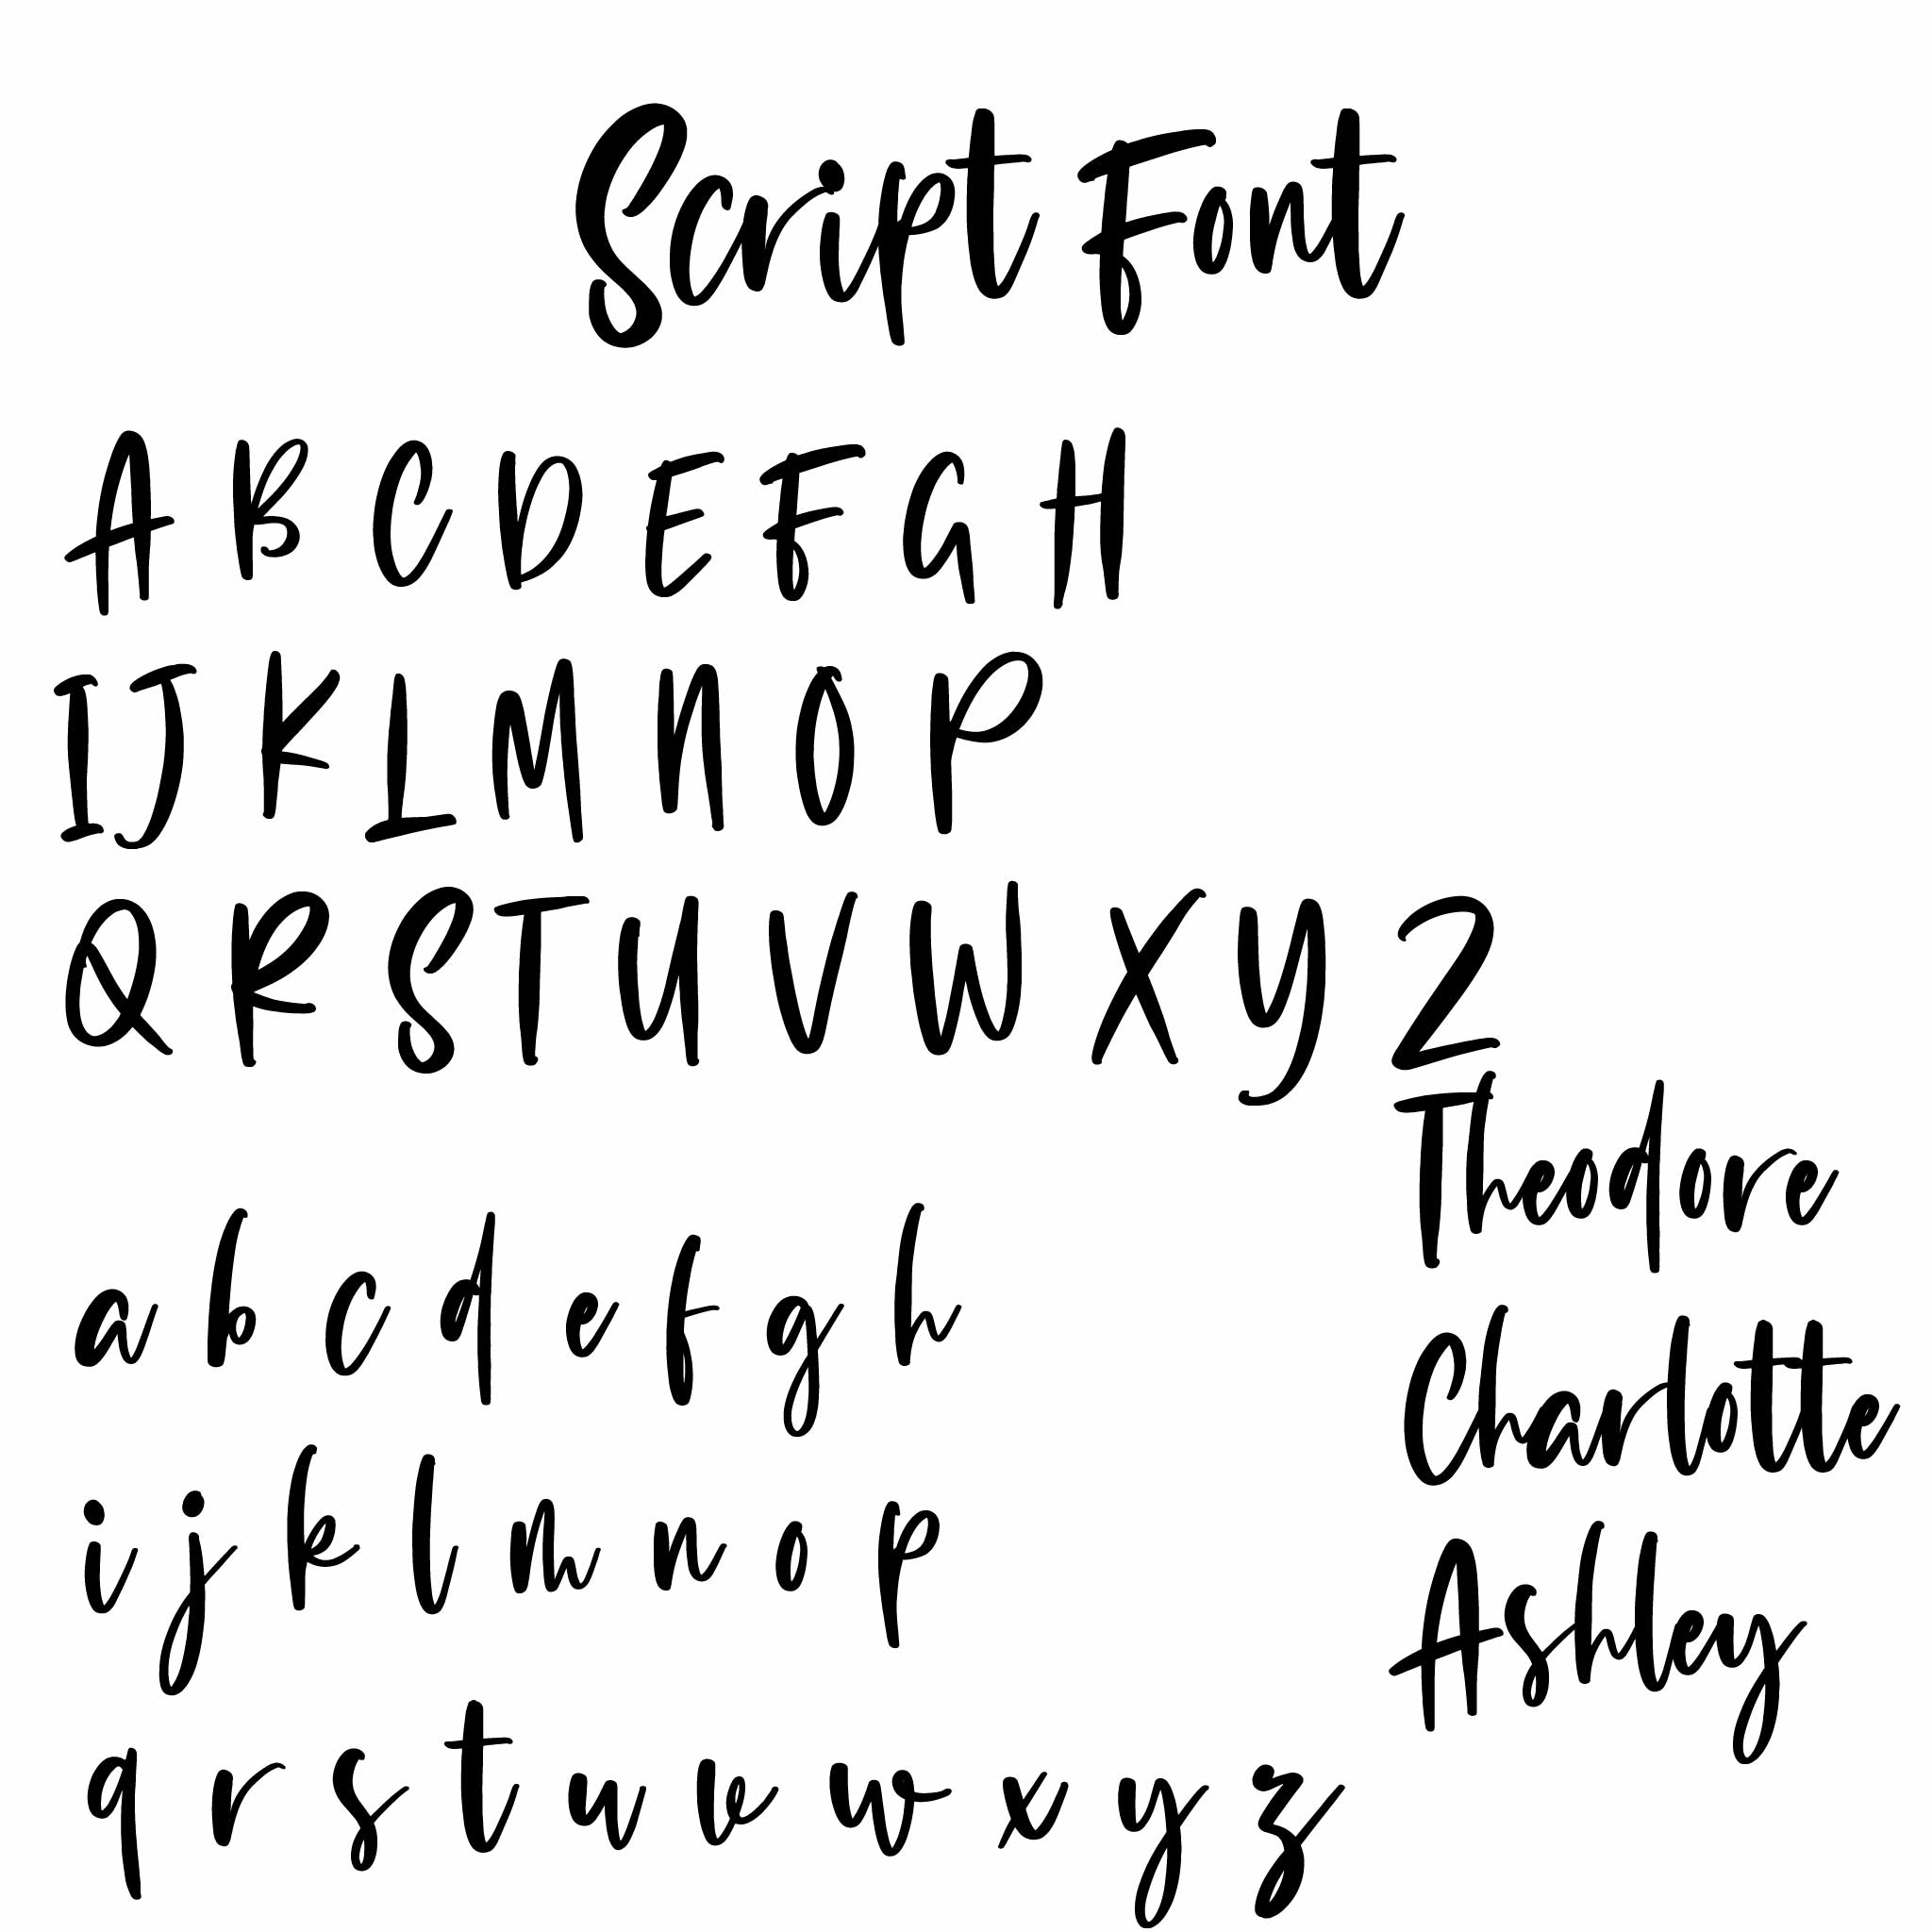 Script Font
A B C D E F G H
I J K L M N O P
Q R S T U V W X Y Z
Theodore
a b c d e f g h
Charlotte
i j k l m n o p
Ashley
q r s t u v w x y z